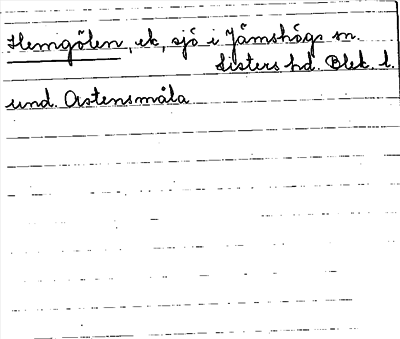 Hemgölen, ek, sjö i Jämshögs sn.
Listers hd. Blek. l.
und. Östensmåla